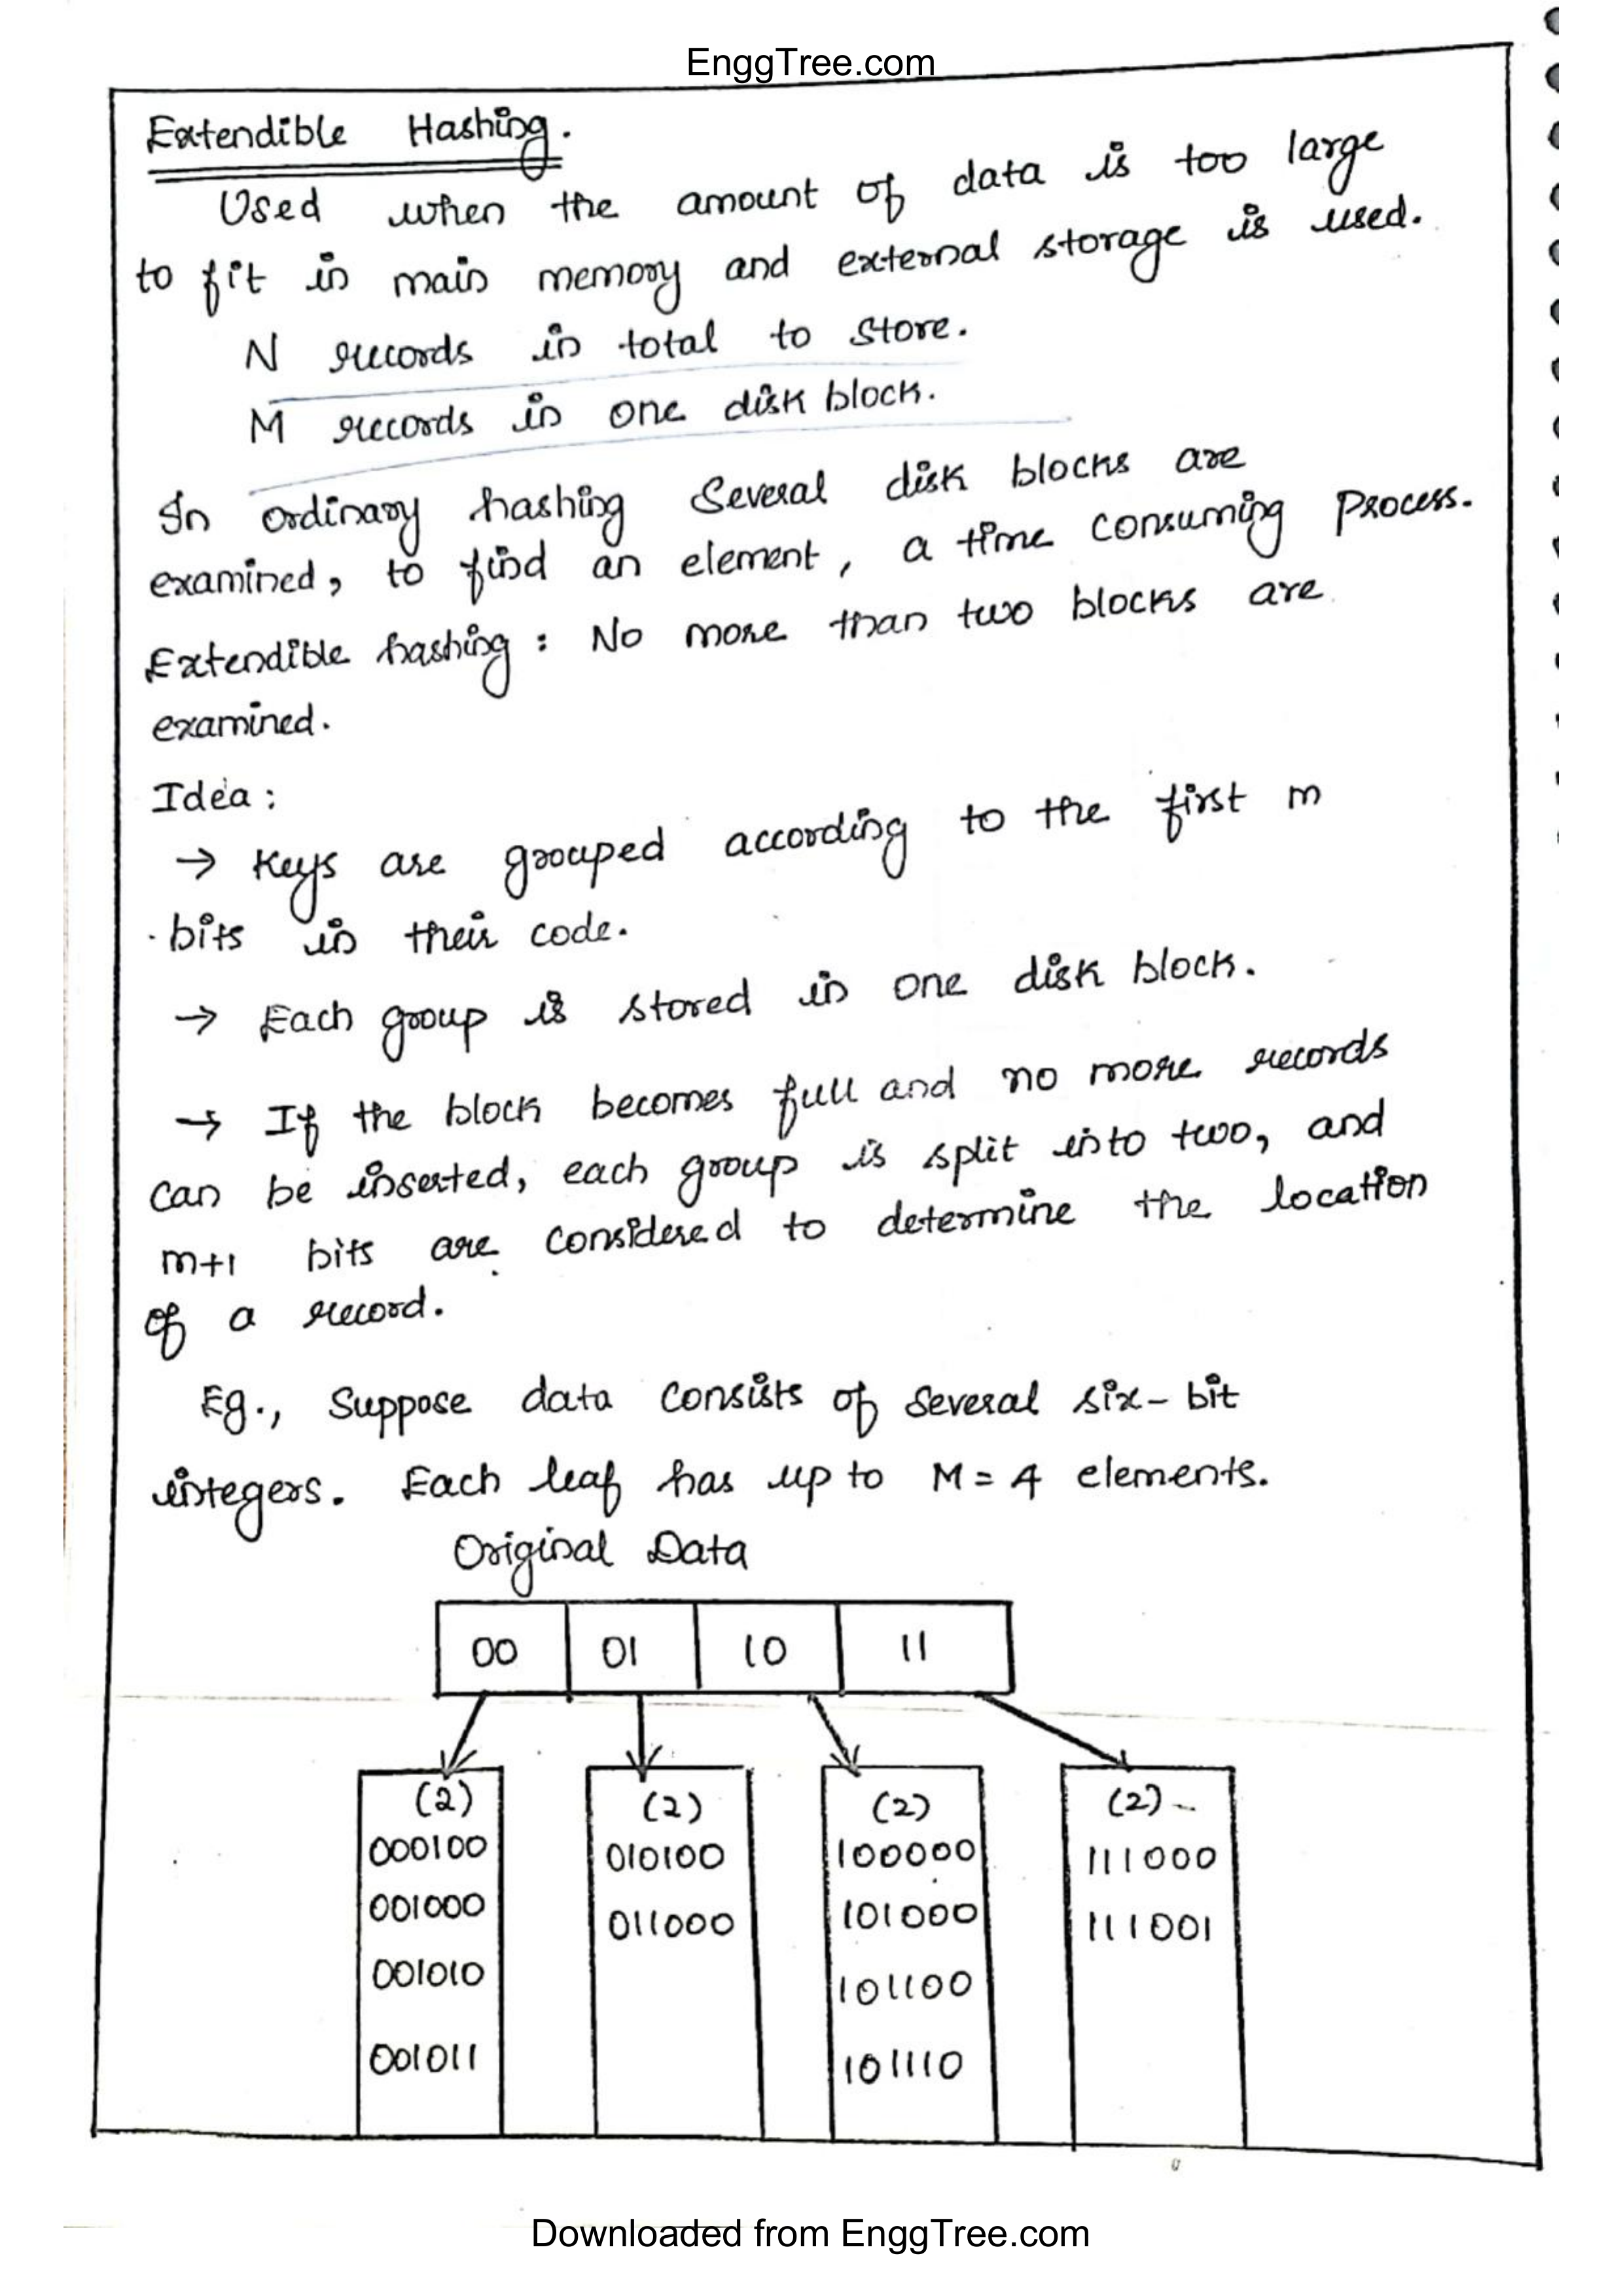 EnggTree.com
Extendible Hashing.
Used when the amount of data is too large
to fit in main memory and external storage is used.
N records in total to store.
M records in one disk block.
In ordinary hashing Several disk blocks are
examined, to find an element, a time consuming Process.
Extendible hashing : No more than two blocks are
examined.
Idea :
→ Keys are grouped according to the first m
bits in their code.
→ Each group is stored in one disk block.
→ If the block becomes full and no more records
can be inserted, each group is split into two, and
m+1 bits are considered to determine the location
of a record.
Eg., Suppose data consists of Several six-bit
integers. Each leaf has up to M = 4 elements.
Original Data
00 01 10 11
(2) (2) (2) (2)
000100 010100 100000 111000
001000 011000 101000 111001
001010 101100
001011 101110
Downloaded from EnggTree.com